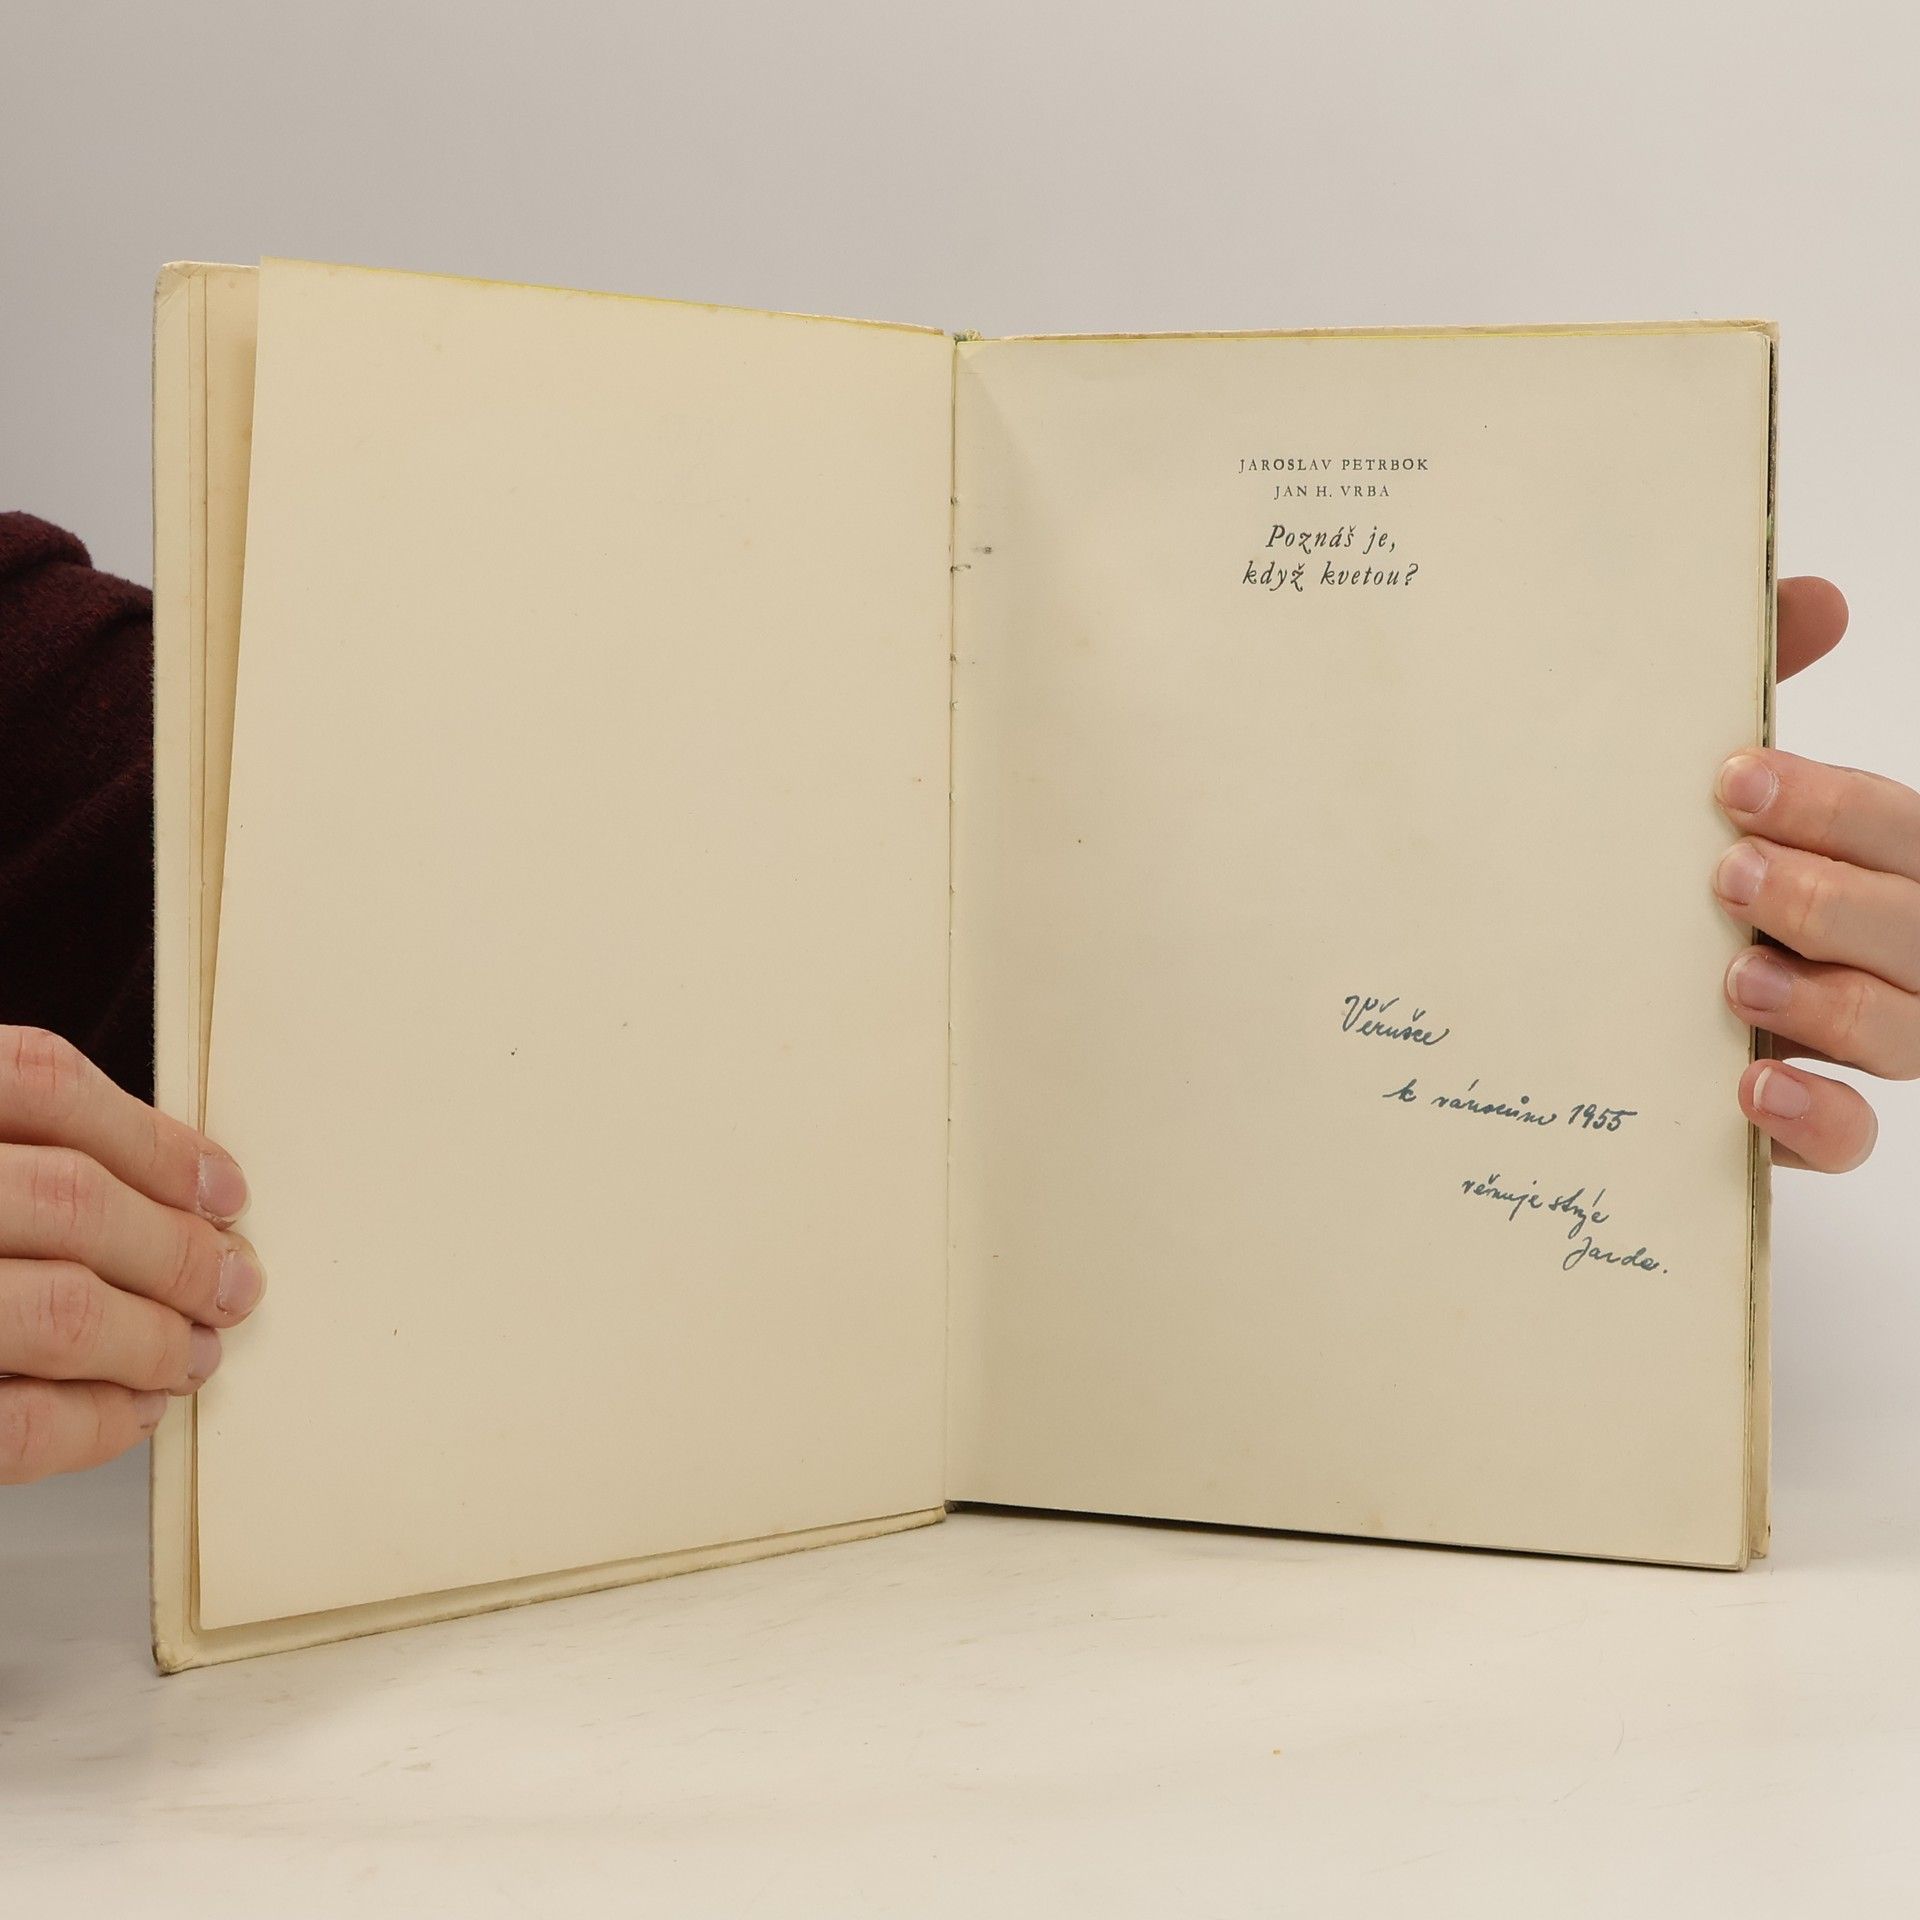 JAROSLAV PETRBOK
JAN H. VRBA
Poznáš je,
když kvetou?
Věrušce
k vánocům 1955
věnuje strýc
Jarda.